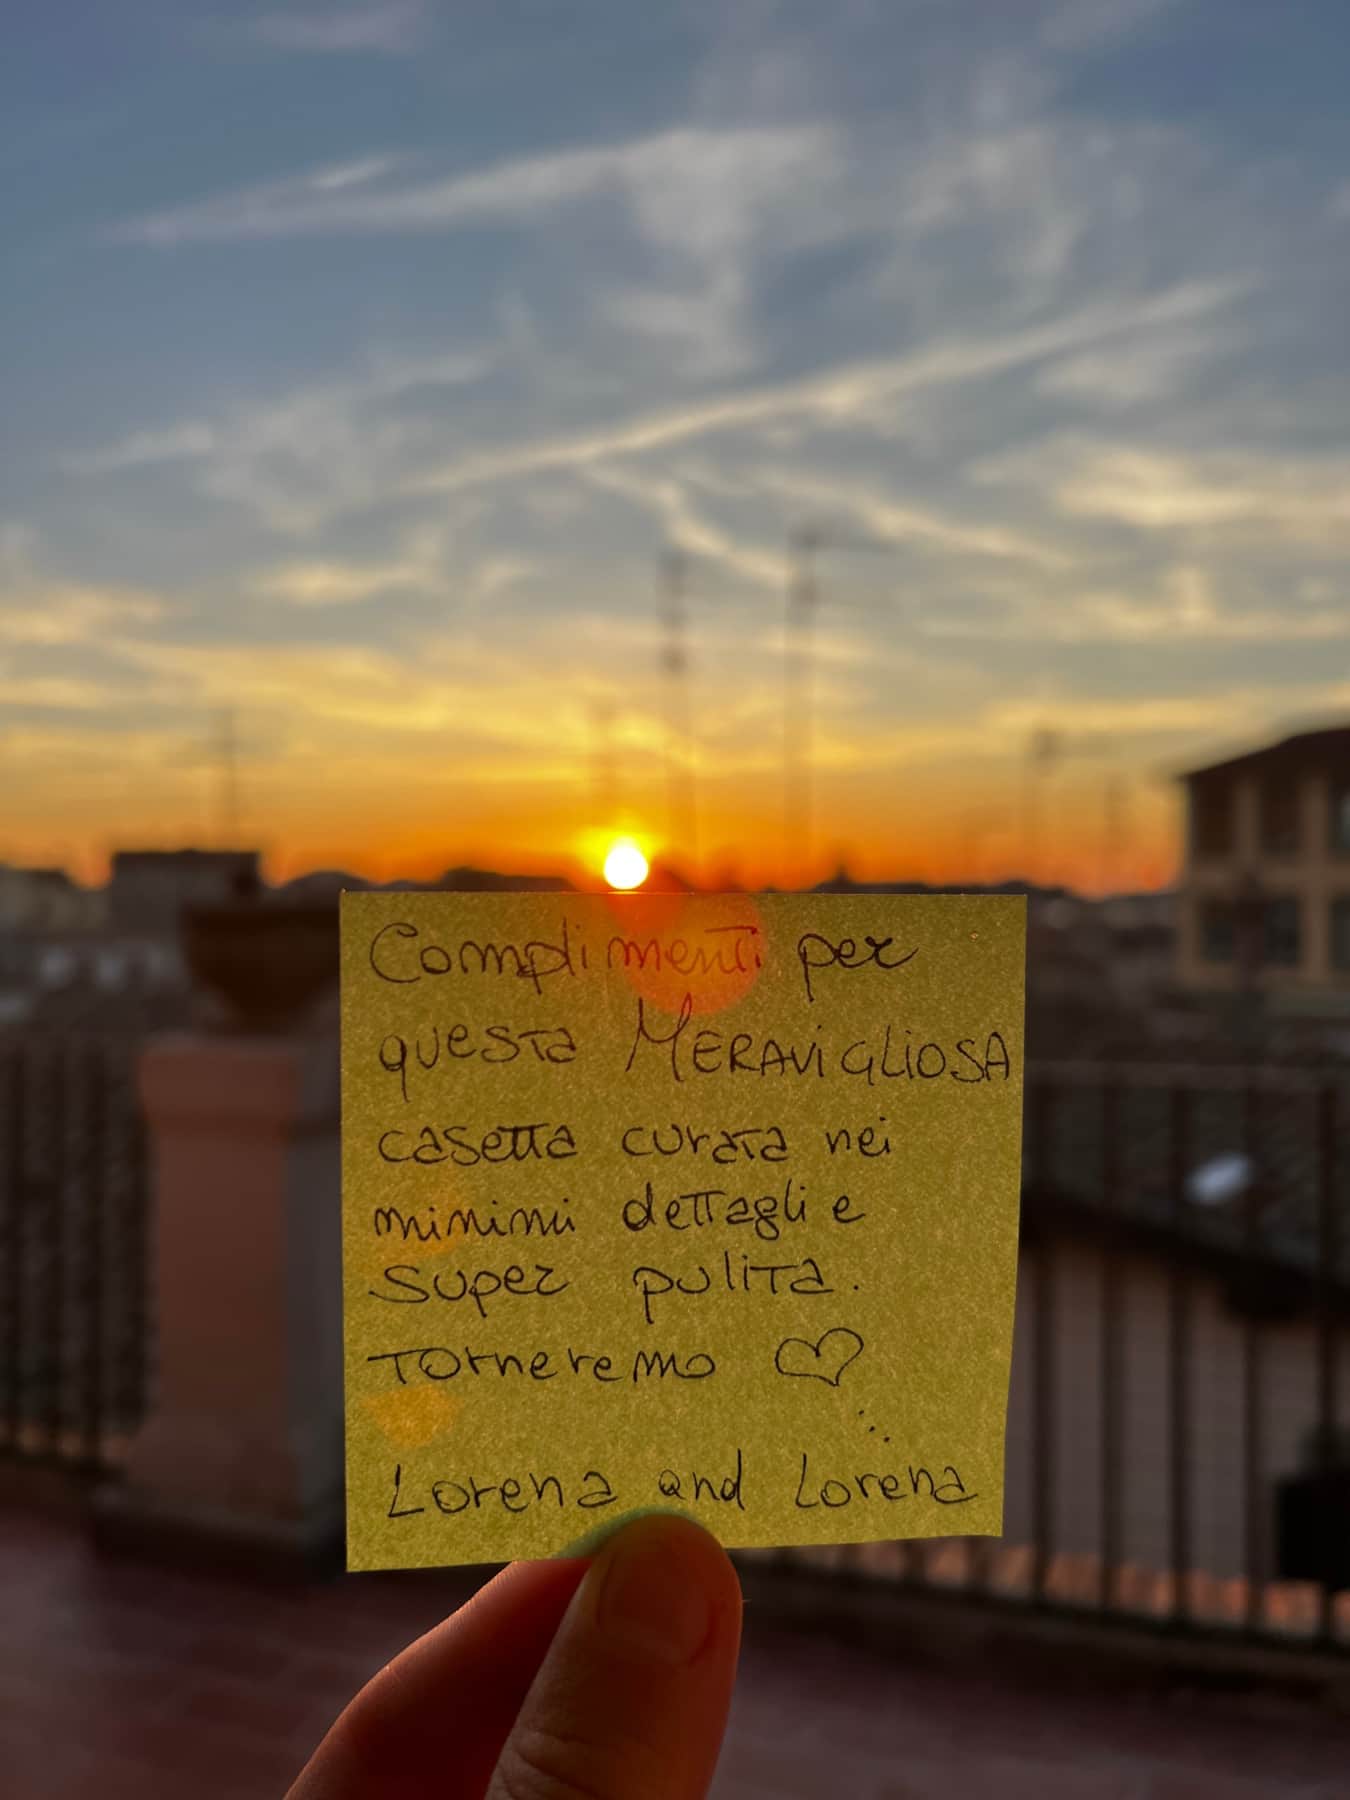 Complimenti per
questa MERAVIGLIOSA
casetta curata nei
minimi dettagli e
super pulita.
Torneremo ♡
...
Lorena and Lorena